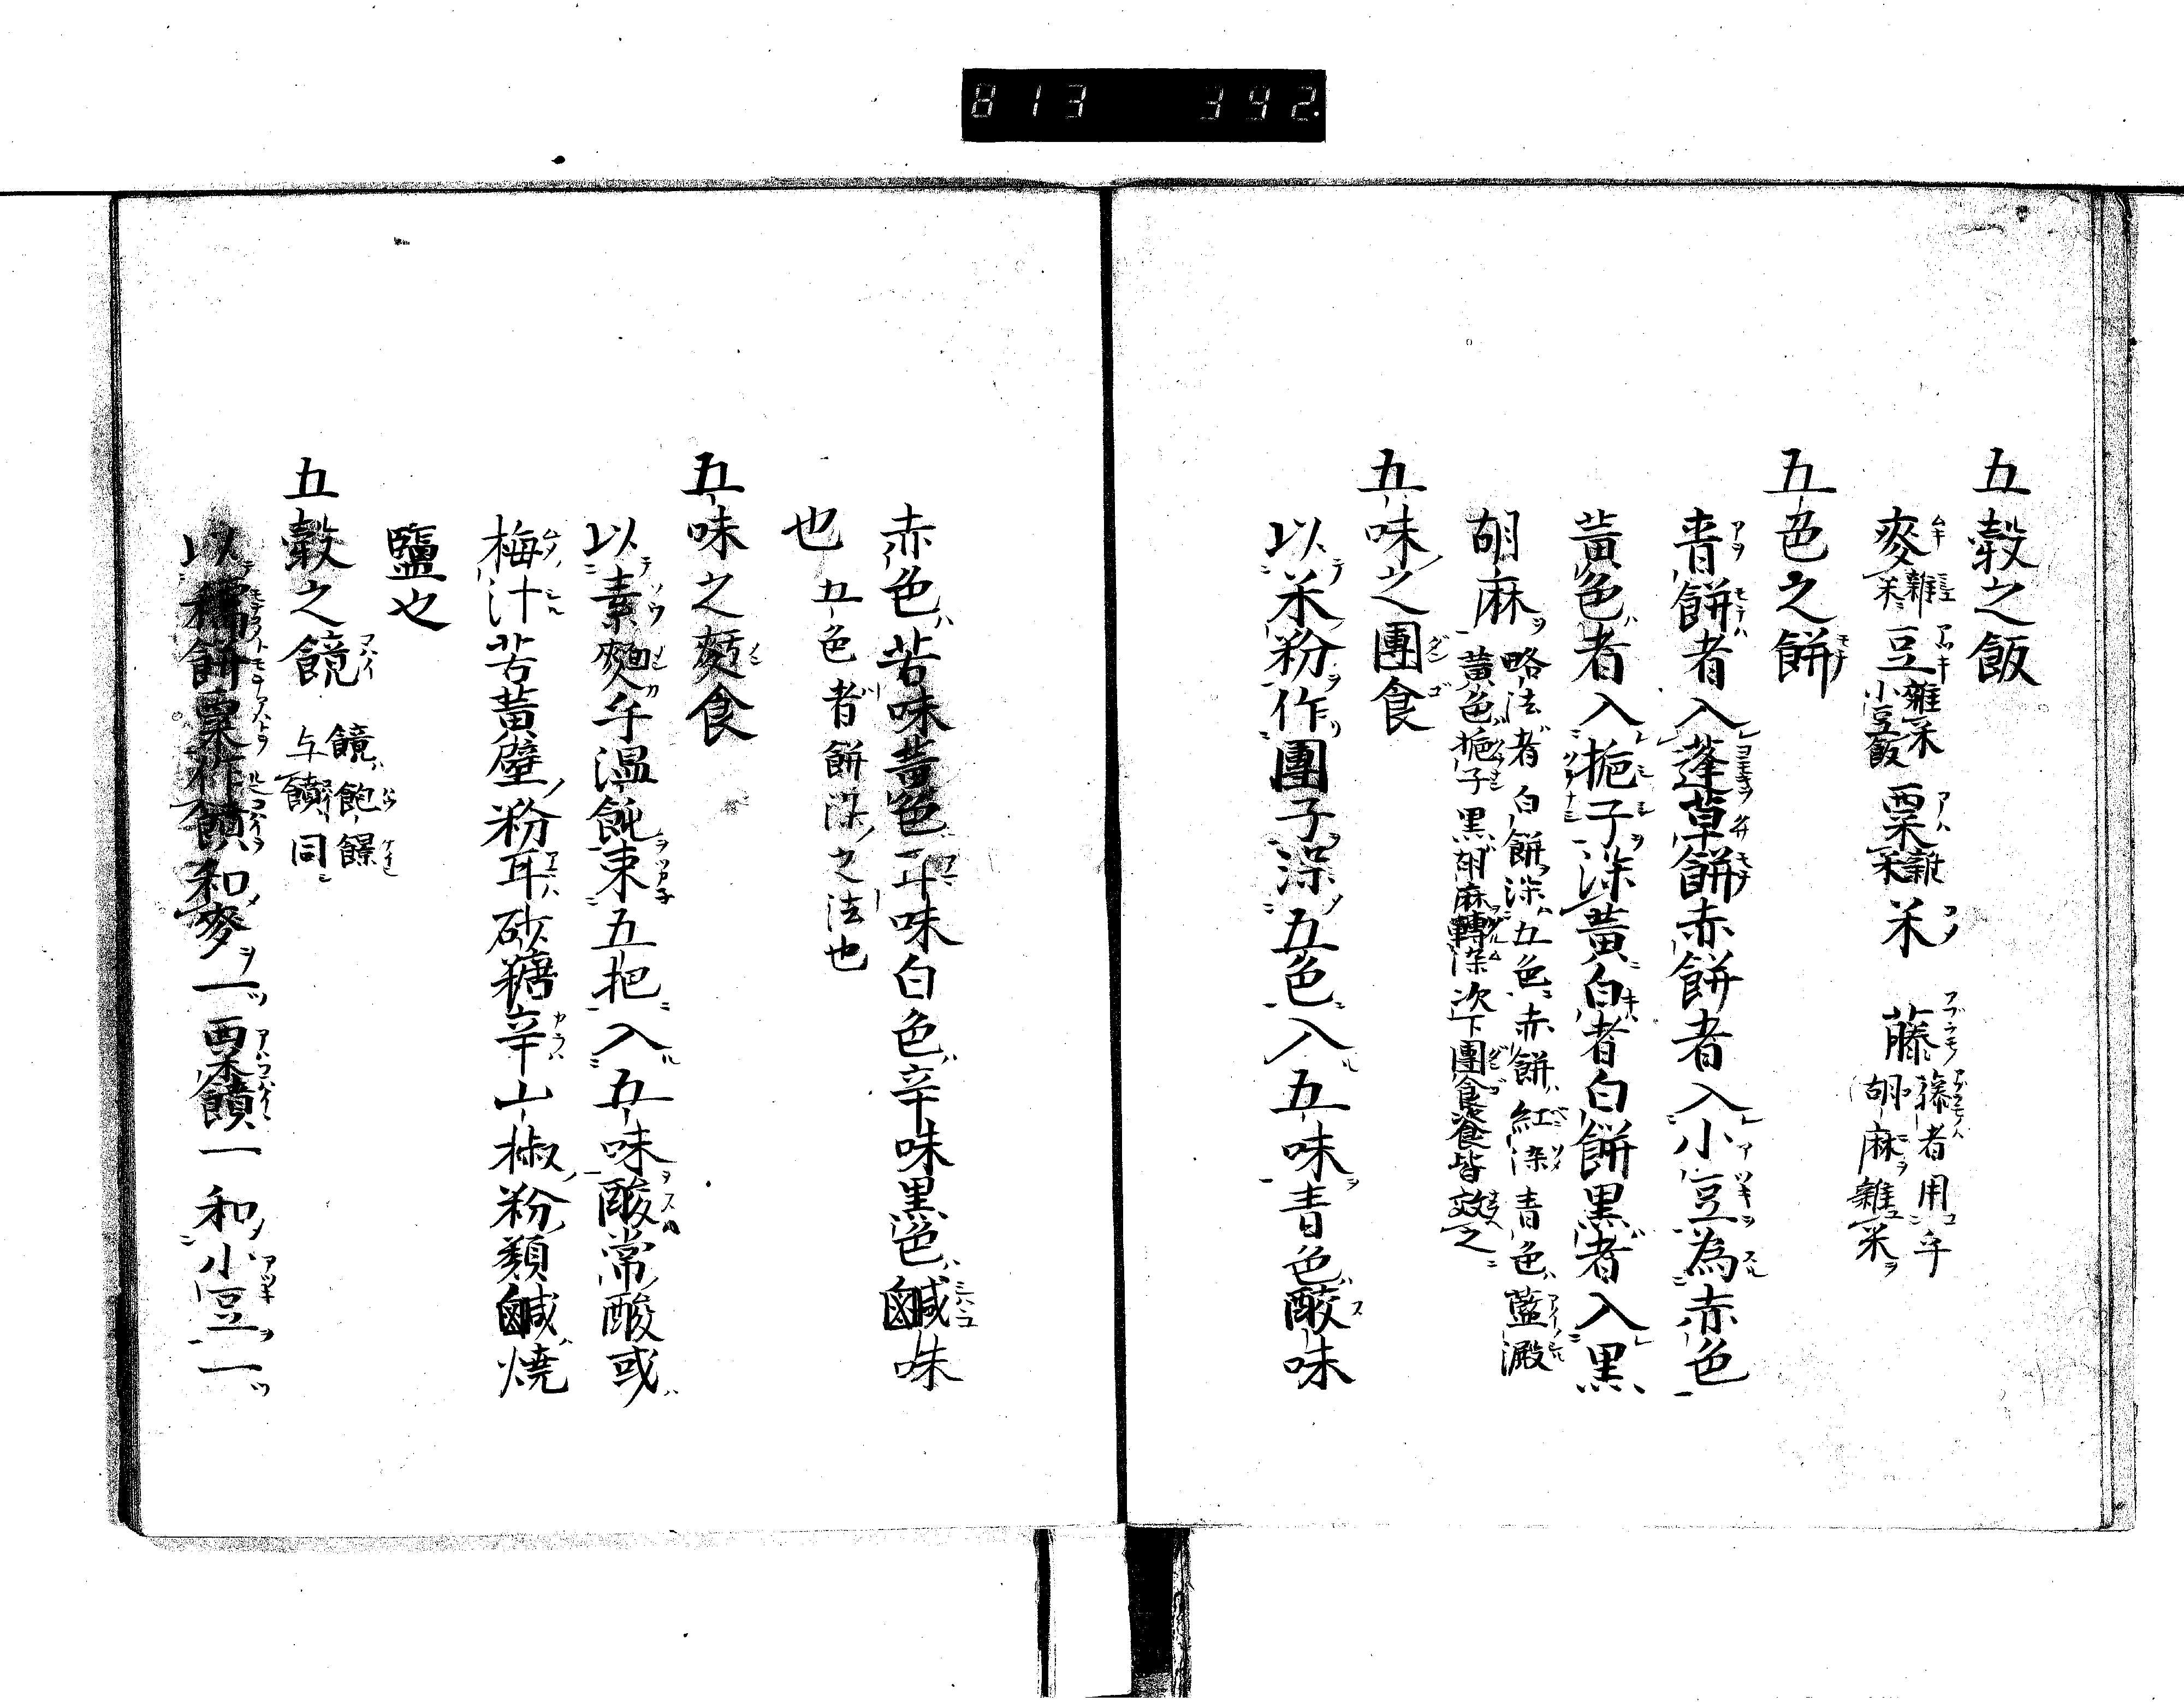 813 392.
五穀之飯
麥雜米豆雜米小豆飯粟雜米米 藤藤者用乎胡麻雜米
五色之餅
青餅者入蓬草餅赤餅者入小豆為赤色
黃色者入梔子染黃白者白餅黑者入黑
胡麻略法者白餅染五色赤餅紅染青色藍澱黃色梔子黑胡麻轉染次下團食飡皆效之
五味之團食
以米粉作團子染五色入五味青色酸味
赤色苦味黃色耳味白色辛味黑色鹹味
也五色者餅染之法也
五味之麪食
以素麵乎溫飩束五把入五味酸常酸或
梅汁苦黃蘗粉耳砂糖辛山椒粉類鹹燒
鹽也
五穀之饒饒飽饌与饙同
以 餅粟作饙和麥一粟饙一和小豆一